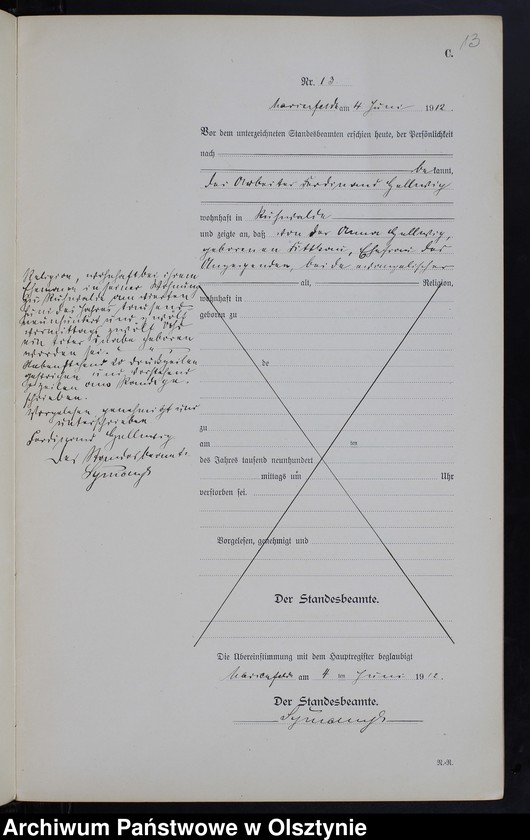 13
C.
Nr. 13
Marienfelde am 4 Juni 1912.
Vor dem unterzeichneten Standesbeamten erschien heute, der Persönlichkeit
nach
be kannt,
der Arbeiter Ferdinand Hellwig
wohnhaft in Kühwalde
und zeigte an, daß von der Anna Hellwig,
geborenen Tittkau, Ehefrau des
Anzeigenden, beide evangelischer
alt, Religion,
wohnhaft in
geboren zu
de
zu
am im
des Jahres tausend neunhundert
mittags um Uhr
verstorben sei.
Vorgelesen, genehmigt und
Der Standesbeamte.
Religion, wohnhaft bei ihrem
Ehemann, in seiner Wohnung
zu Kühwalde am
Juni des Jahres tausend
neunhundert und zwölf
vormittags zwölf Uhr
ein toter Knabe geboren
worden sei.
Nebenstehend Druckzeilen
gestrichen und vorstehend
Zeilen am Rande ge-
schrieben.
Vorgelesen, genehmigt und
unterschrieben
Ferdinand Hellwig
Der Standesbeamte.
Die Übereinstimmung mit dem Hauptregister beglaubigt
Marienfelde am 4 ten Juni 1912.
Der Standesbeamte.
N.-R.
Archiwum Państwowe w Olsztynie